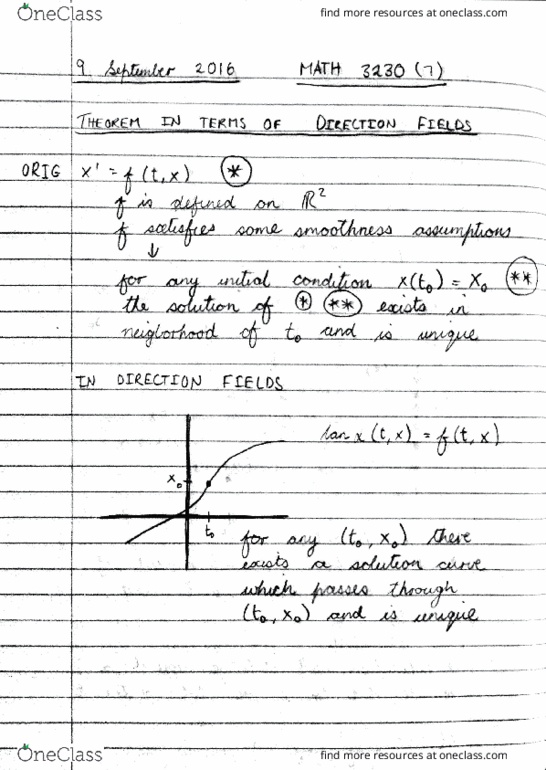 OneClass find more resources at oneclass.com
9 September 2016 MATH 3230 (7)
THEOREM IN TERMS OF DIRECTION FIELDS
ORIG x' = f(t, x) (*)
f is defined on ℝ²
f satisfies some smoothness assumptions
↓
for any initial condition x(t₀) = x₀ (**)
the solution of (*) (**) exists in
neiglorhood of t₀ and is unique
IN DIRECTION FIELDS
tan x (t, x) = f(t, x)
x₀
t₀
for any (t₀, x₀) there
exists a solution curve
which passes through
(t₀, x₀) and is unique
OneClass find more resources at oneclass.com